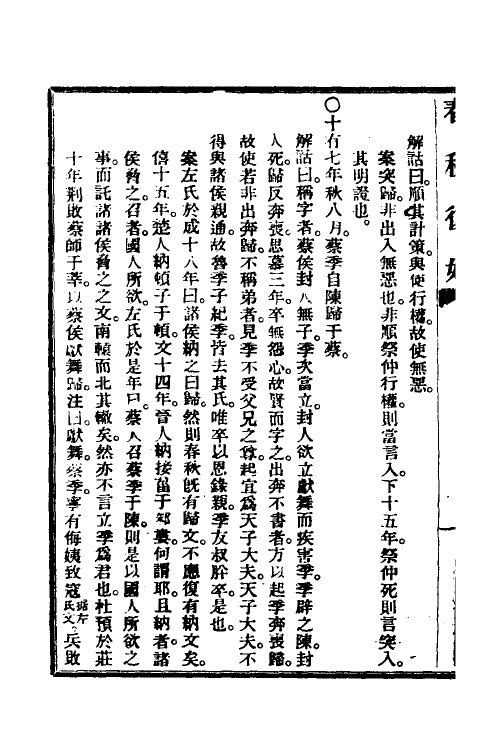 解詁曰。順其計策。與使行權。故使無惡。
案突歸。非出入無惡也。非順祭仲行權。則當言入。下十五年。祭仲死。則言突入。
其明證也。
○十有七年。秋八月。蔡季自陳歸于蔡。
解詁曰。稱字者。蔡侯封人無子。季次當立。封人欲立獻舞而疾害季。季辟之陳。封
人死。歸反奔喪。思慕三年。卒無怨心。故賢而字之。出奔不書者。方以起季奔喪歸。
故使若非出奔歸。不稱弟者。見季不受父兄之尊。起宜爲天子大夫。天子大夫。不
得與諸侯親通。故魯季子紀季。皆去其氏。唯卒以恩錄親。季友叔肸卒是也。
案左氏於成十八年曰。諸侯納之曰歸。然則春秋旣有歸文。不應復有納文矣。
僖十五年。楚人納頓子于頓。文十四年。晉人納接菑于邾婁。何謂耶。且納者。諸
侯脅之。召者。國人所欲。左氏於是年曰。蔡人召蔡季于陳。則是以國人所欲之
事。而託諸諸侯脅之之文。南轅而北其轍矣。然亦不言立季爲君也。杜預於莊
十年荆敗蔡師于莘。以蔡侯獻舞歸。注曰。獻舞。蔡季。寧有侮姨致寇據左氏文。兵敗